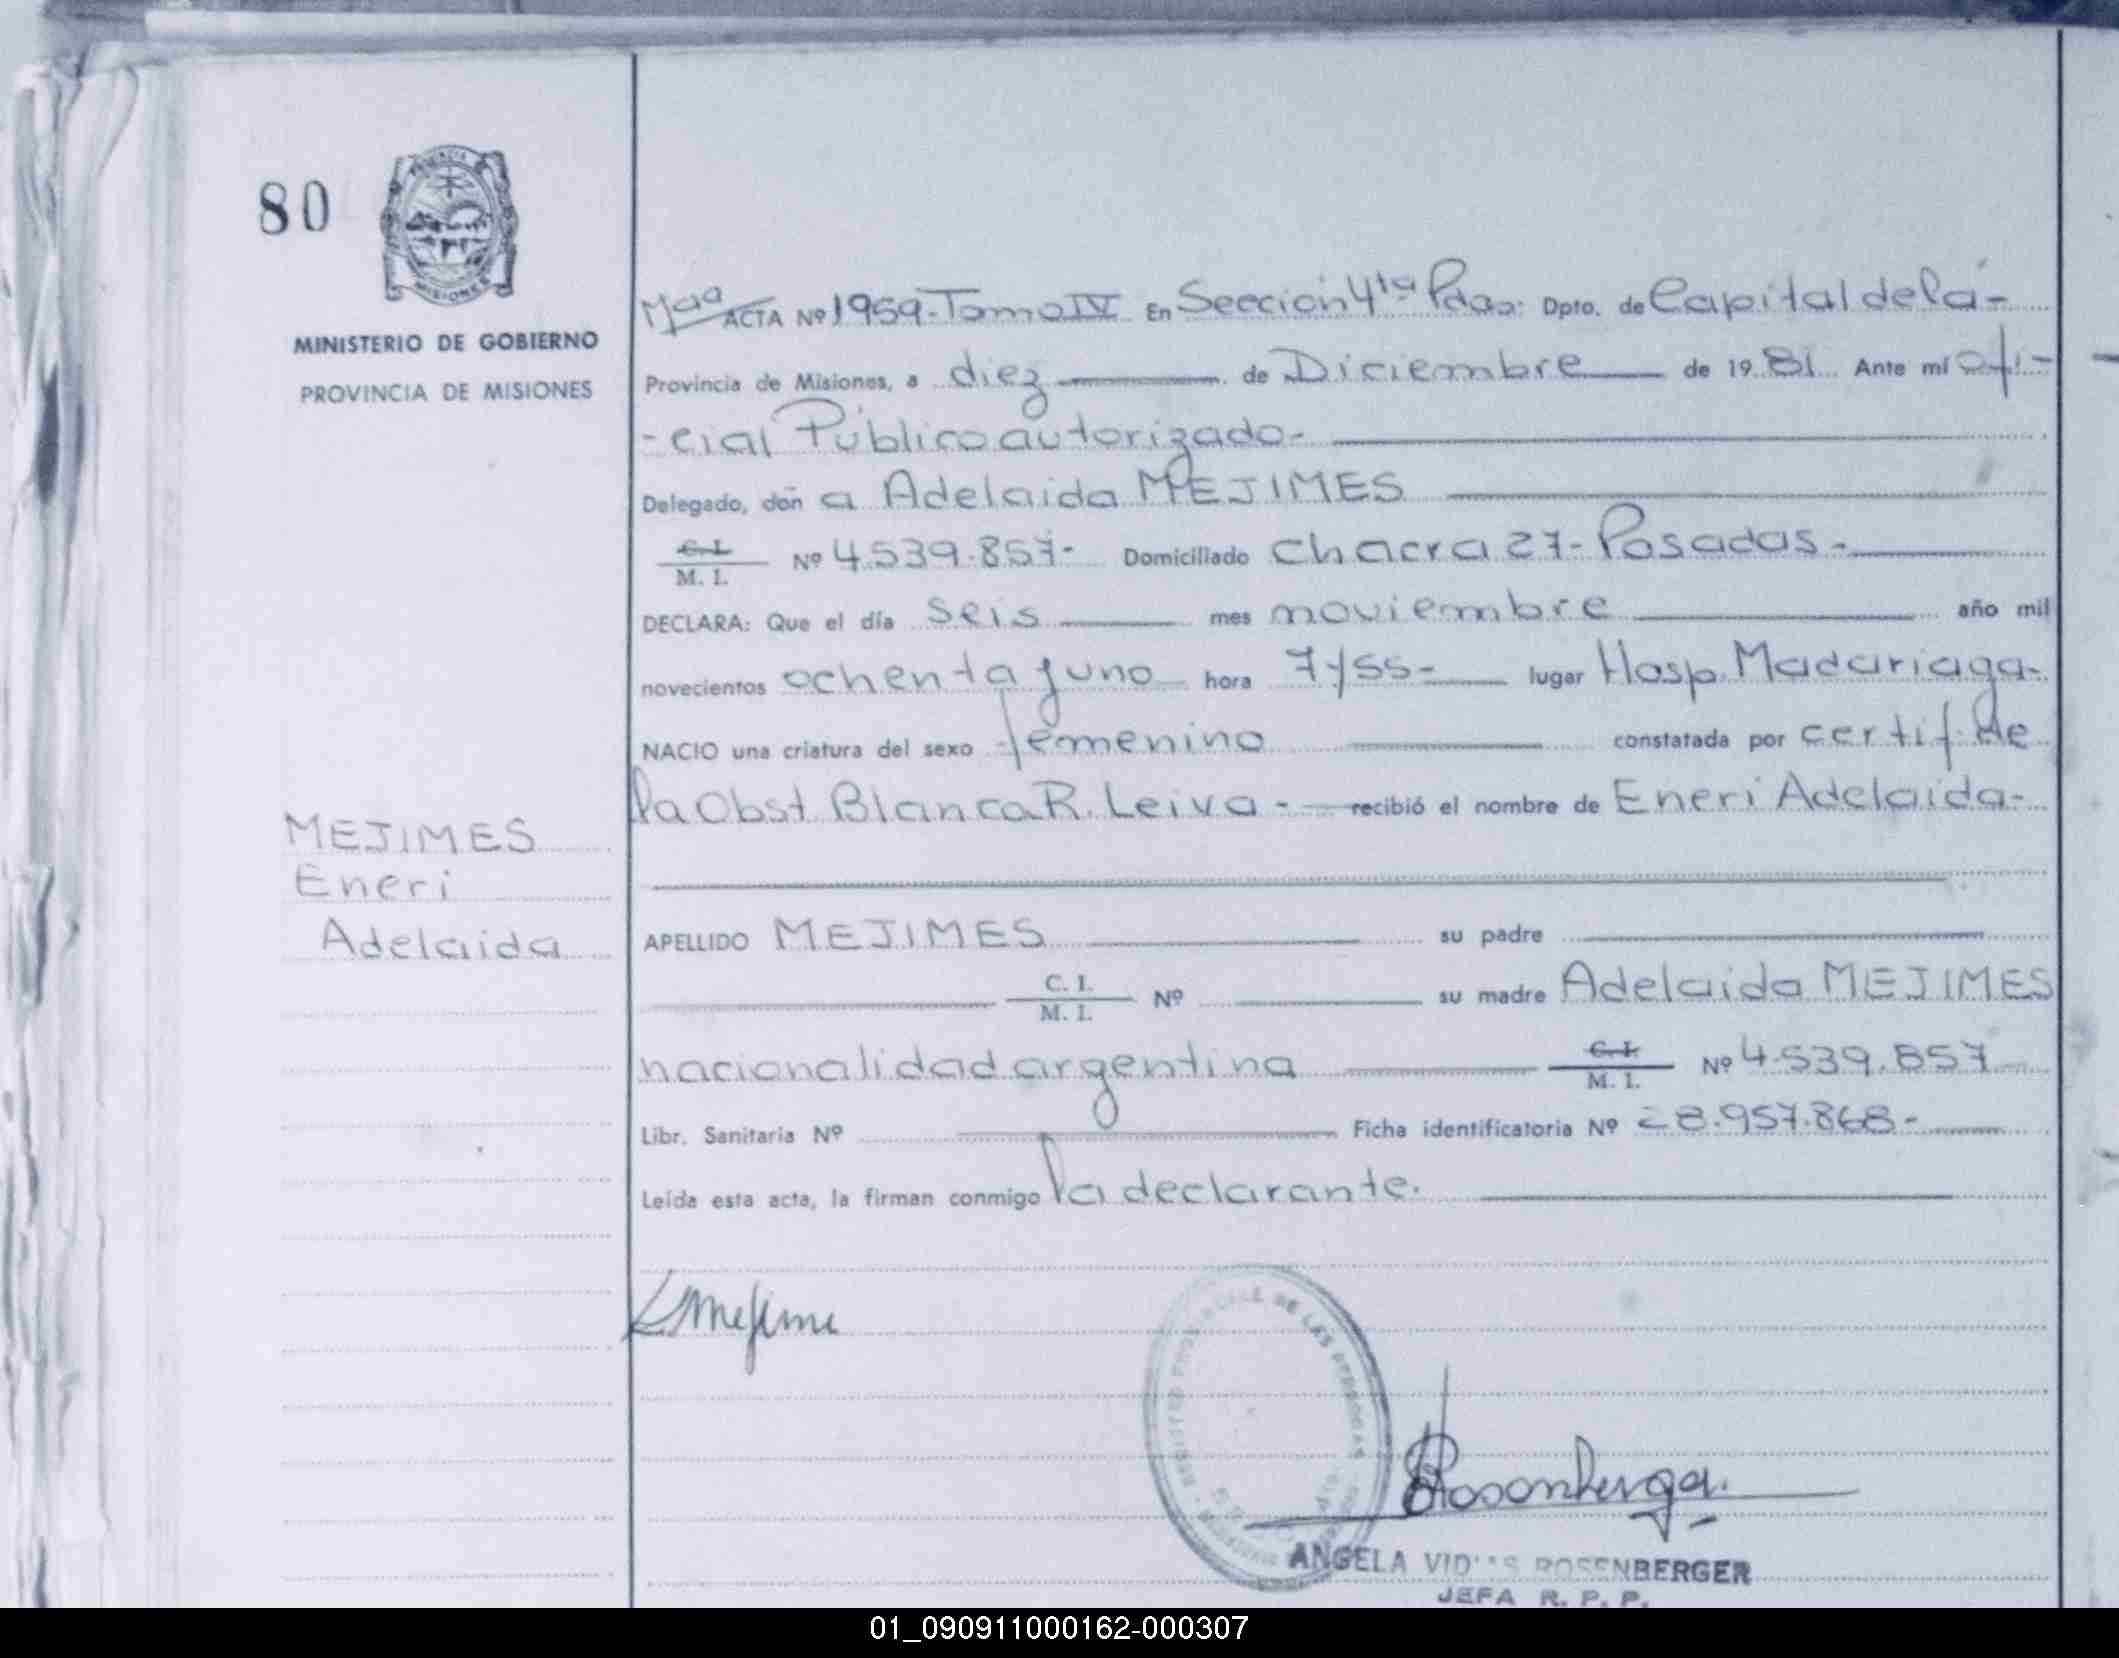 80
MINISTERIO DE GOBIERNO
PROVINCIA DE MISIONES
ACTA Nº 1959-Tomo IV En Sección 4ta Pdas: Dpto. de Capital de la-
Provincia de Misiones, a diez de Diciembre de 1981 Ante mí ofi-
-cial Público autorizado-
Delegado, doñ a Adelaida MEJIMES
C. I. / M. I. Nº 4.539.857- Domiciliado chacra 27-Posadas-
DECLARA: Que el día seis mes noviembre año mil
novecientos ochenta y uno hora 7y55- lugar Hosp. Madariaga-
NACIO una criatura del sexo femenino constatada por certif. de
la Obst. Blanca R. Leiva- recibió el nombre de Eneri Adelaida-
MEJIMES
Eneri
Adelaida
APELLIDO MEJIMES su padre
C. I. / M. I. Nº su madre Adelaida MEJIMES
nacionalidad argentina C. I. / M. I. Nº 4.539.857
Libr. Sanitaria Nº Ficha identificatoria Nº 28.957.868-
Leída esta acta, la firman conmigo la declarante.
Mejime
DE LAS PERSONAS
Rosenberger
ANGELA ROSENBERGER
JEFA R. P. P.
01_090911000162-000307